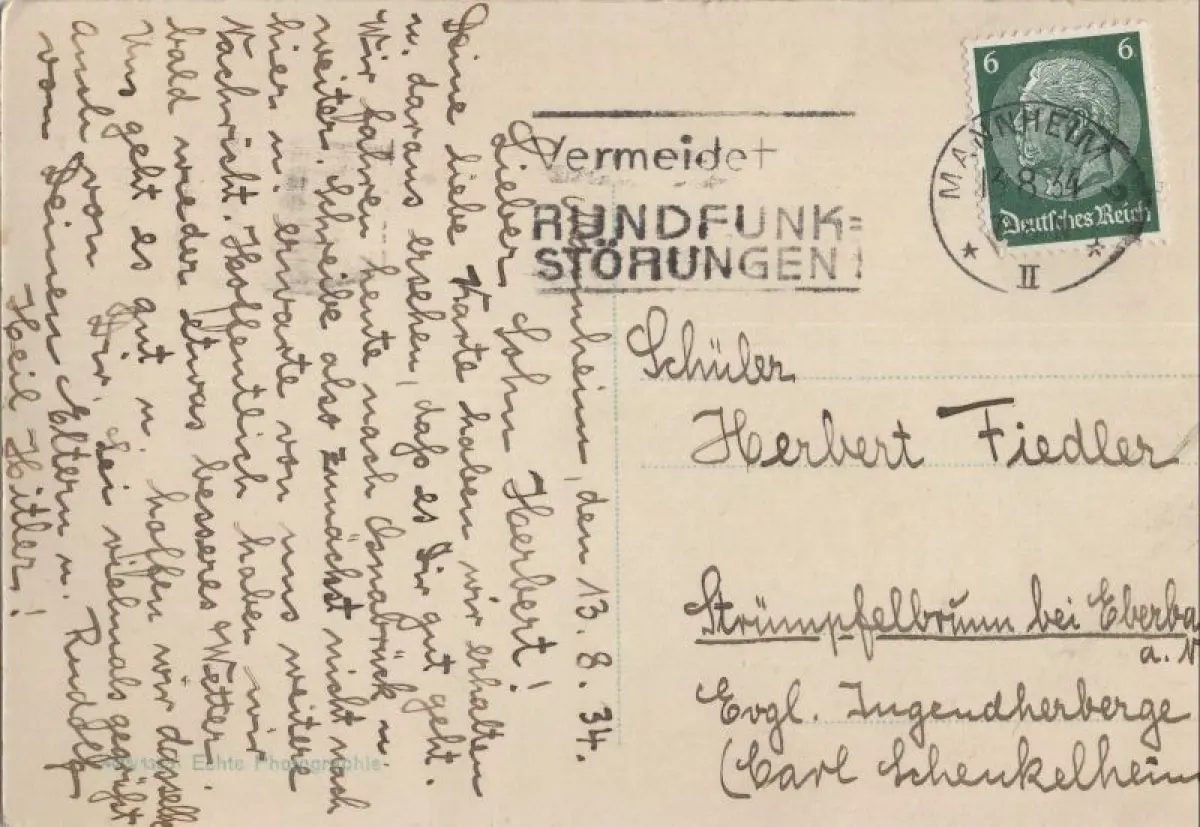 Mannheim, den 13. 8. 34.
Lieber Sohn Herbert!
Deine liebe Karte haben wir erhalten
u. daraus ersehen, dass es Dir gut geht.
Wir fahren heute nach Osnabrück u
weiter. Schreibe also zunächst nicht nach
hier u. erwarte von uns weitere
Nachricht. Hoffentlich haben wir
bald wieder etwas besseres Wetter.
Uns geht es gut u. hoffen wir dasselbe
auch von Dir. Sei vielmals gegrüßt
von Deinen Eltern u.
Heil Hitler!
Echte Photographie
Vermeidet
RUNDFUNK=
STÖRUNGEN!
6 6
Deutsches Reich
MANNHEIM 2
13.8.34
II
Schüler
Herbert Fiedler
Strümpfelbrunn bei Eberba
a. N
Evgl. Jugendherberge
(Carl Schenkelheim